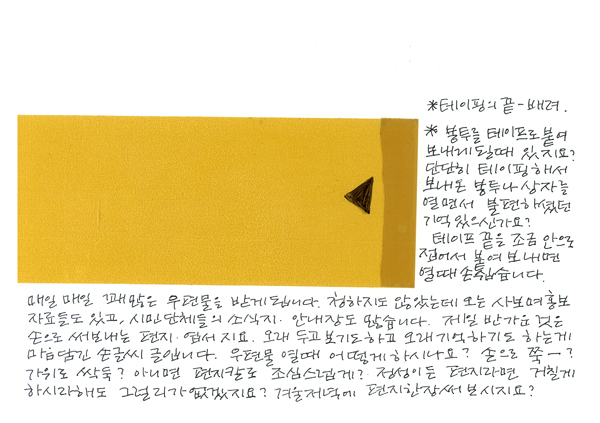 *테이핑의 끝-배려.
* 봉투를 테이프로 붙여
보내게 될 때 있지요?
단단히 테이핑해서
보내온 봉투나 상자를
열면서 불편하셨던
기억 있으신가요?
테이프 끝을 조금 안으로
접어서 붙여 보내면
열 때 손쉽습니다.
매일 매일 꽤 많은 우편물을 받게 됩니다. 청하지도 않았는데 오는 사보며 홍보
자료들도 있고, 시민단체들의 소식지·안내장도 많습니다. 제일 반가운 것은
손으로 써 보내는 편지·엽서지요. 오래 두고 보기도 하고 오래 기억하기도 하는 게
마음 담긴 손글씨 글입니다. 우편물 열 때 어떻게 하시나요? 손으로 쭉―?
가위로 싹둑? 아니면 편지칼로 조심스럽게? 정성이 든 편지라면 거칠게
하시라 해도 그럴 리가 없겠지요? 겨울 저녁에 편지 한 장 써 보시지요?